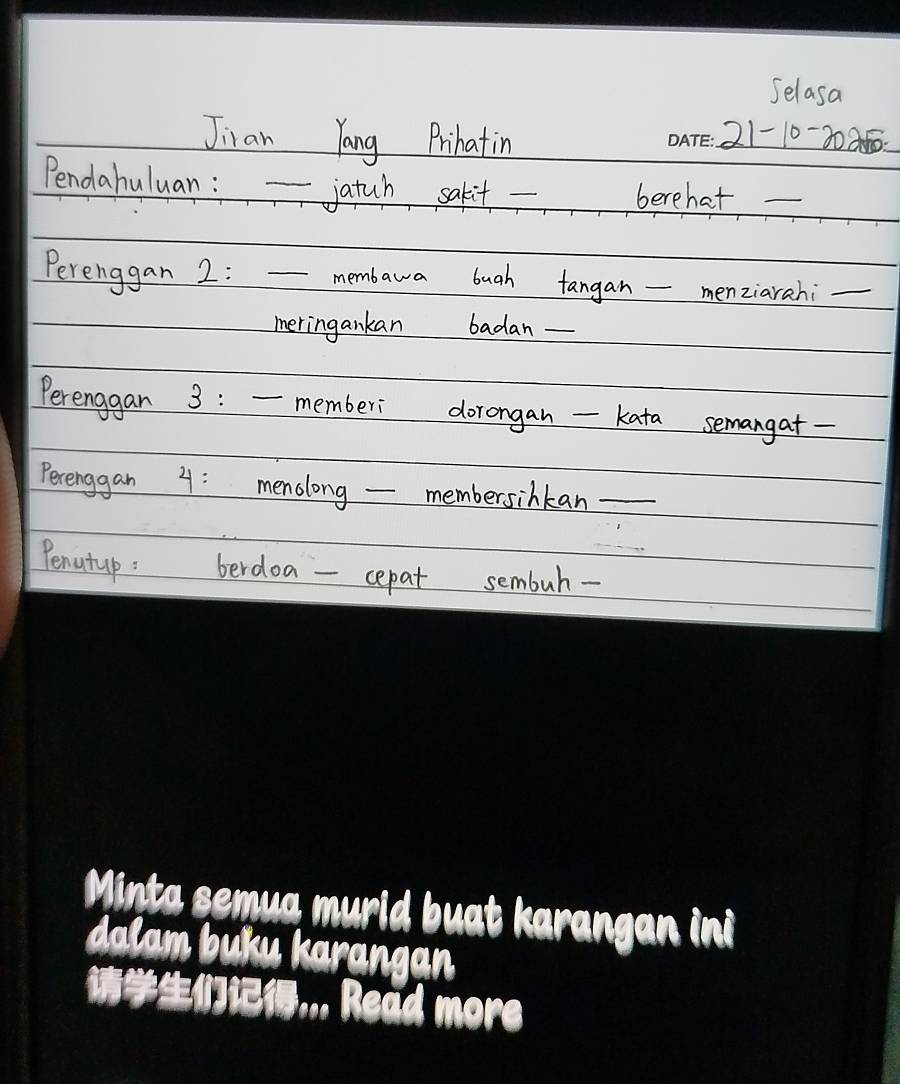 Selasa
Jiran Yang Prihatin DATE: 21-10-2025
Pendahuluan: — jatuh sakit — berehat —
Perenggan 2: — membawa buah tangan — menziarahi —
meringankan badan —
Perenggan 3: — memberi dorongan — kata semangat —
Perenggan 4: menolong — membersihkan —
Penutup: berdoa — cepat sembuh —
Minta semua murid buat karangan ini
dalam buku karangan
请学生们记得... Read more